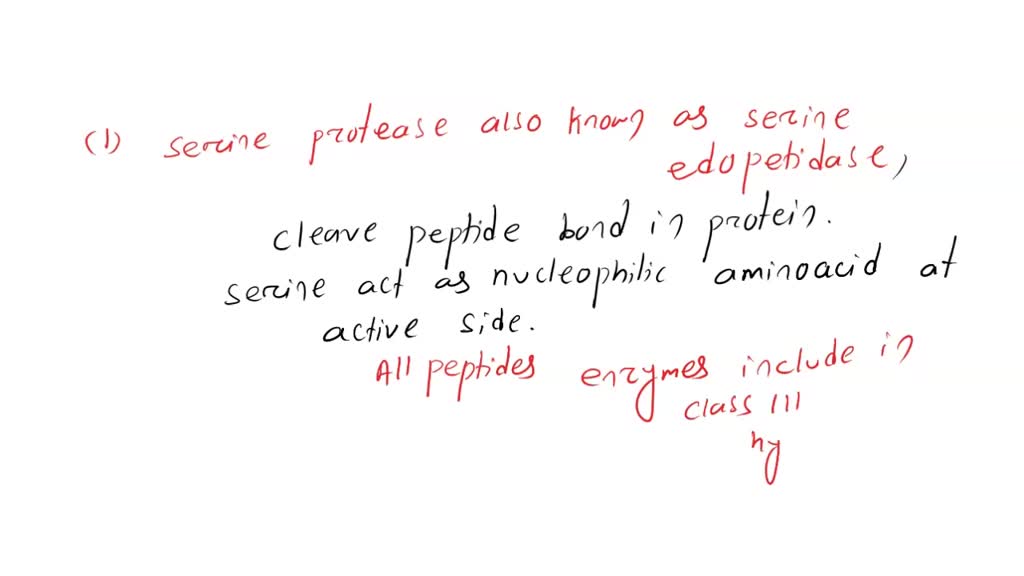 (1) serine protease also known as serine
edopetidase,
cleave peptide bond in protein.
serine act as nucleophilic aminoacid at
active side.
All peptides enzymes include in
class III
hy